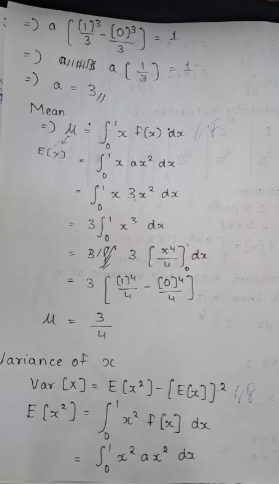 =) a [ (1)³/3 - (0)³/3 ] = 1
=) a ( 1/3 ) = 1
=) a = 3,,
Mean
=) μ = ∫₀¹ x f(x) dx
E[x]
= ∫₀¹ x ax² dx
= ∫₀¹ x 3x² dx
= 3∫₀¹ x³ dx
= 3 [ x⁴/4 ]₀¹ dx
= 3 [ (1)⁴/4 - (0)⁴/4 ]
μ = 3/4
Variance of x
Var [X] = E[x²] - [E(x)]²
E[x²] = ∫₀¹ x² f[x] dx
= ∫₀¹ x² ax² dx